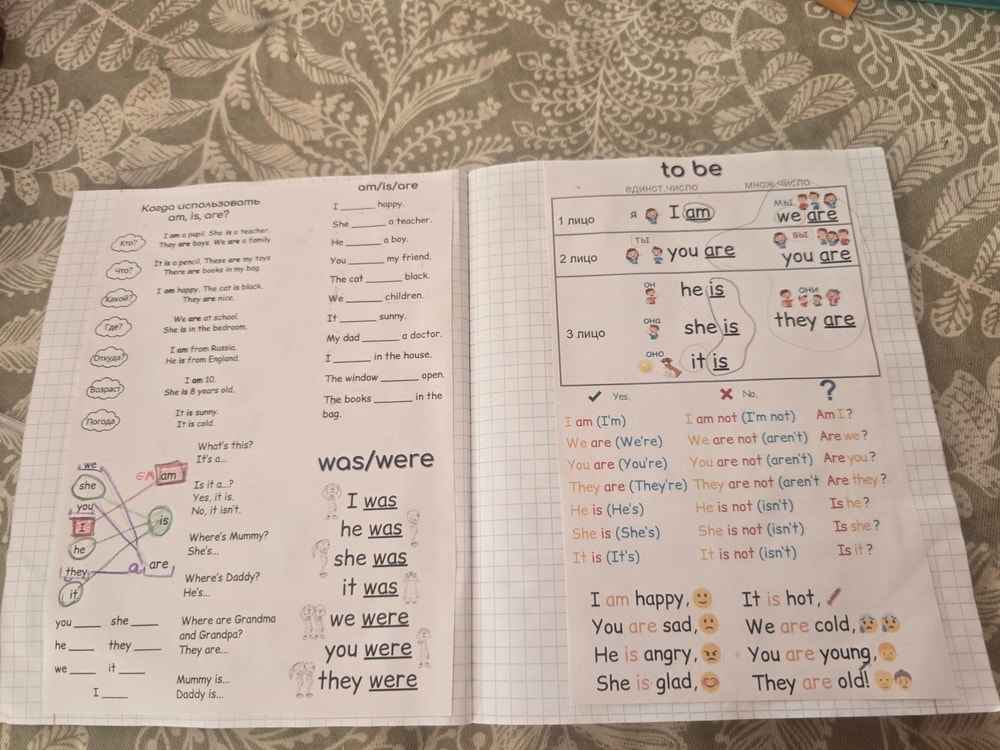 Когда использовать
am, is, are?
Кто?
I am a pupil. She is a teacher.
They are boys. We are a family
Что?
It is a pencil. These are my toys
There are books in my bag.
Какой?
I am happy. The cat is black.
They are nice.
Где?
We are at school.
She is in the bedroom.
Откуда?
I am from Russia.
He is from England.
Возраст
I am 10.
She is 8 years old.
Погода
It is sunny.
It is cold.
we
she
you
I
he
they
it
am
is
are
What's this?
It's a...
Is it a...?
Yes, it is.
No, it isn't.
Where's Mummy?
She's...
Where's Daddy?
He's...
Where are Grandma
and Grandpa?
They are...
Mummy is...
Daddy is...
you ____ she ____
he ____ they ____
we ____ it ____
I ____
am/is/are
I ______ happy.
She ______ a teacher.
He ______ a boy.
You ______ my friend.
The cat ______ black.
We ______ children.
It ______ sunny.
My dad ______ a doctor.
I ______ in the house.
The window ______ open.
The books ______ in the
bag.
was/were
I was
he was
she was
it was
we were
you were
they were
to be
единст.число множ.число
1 лицо я I am мы we are
2 лицо ты you are вы you are
3 лицо
он he is
она she is
оно it is
они they are
Yes, No, ?
I am (I'm) I am not (I'm not) Am I?
We are (We're) We are not (aren't) Are we?
You are (You're) You are not (aren't) Are you?
They are (They're) They are not (aren't Are they?
He is (He's) He is not (isn't) Is he?
She is (She's) She is not (isn't) Is she?
It is (It's) It is not (isn't) Is it?
I am happy, It is hot,
You are sad, We are cold,
He is angry, You are young,
She is glad, They are old!